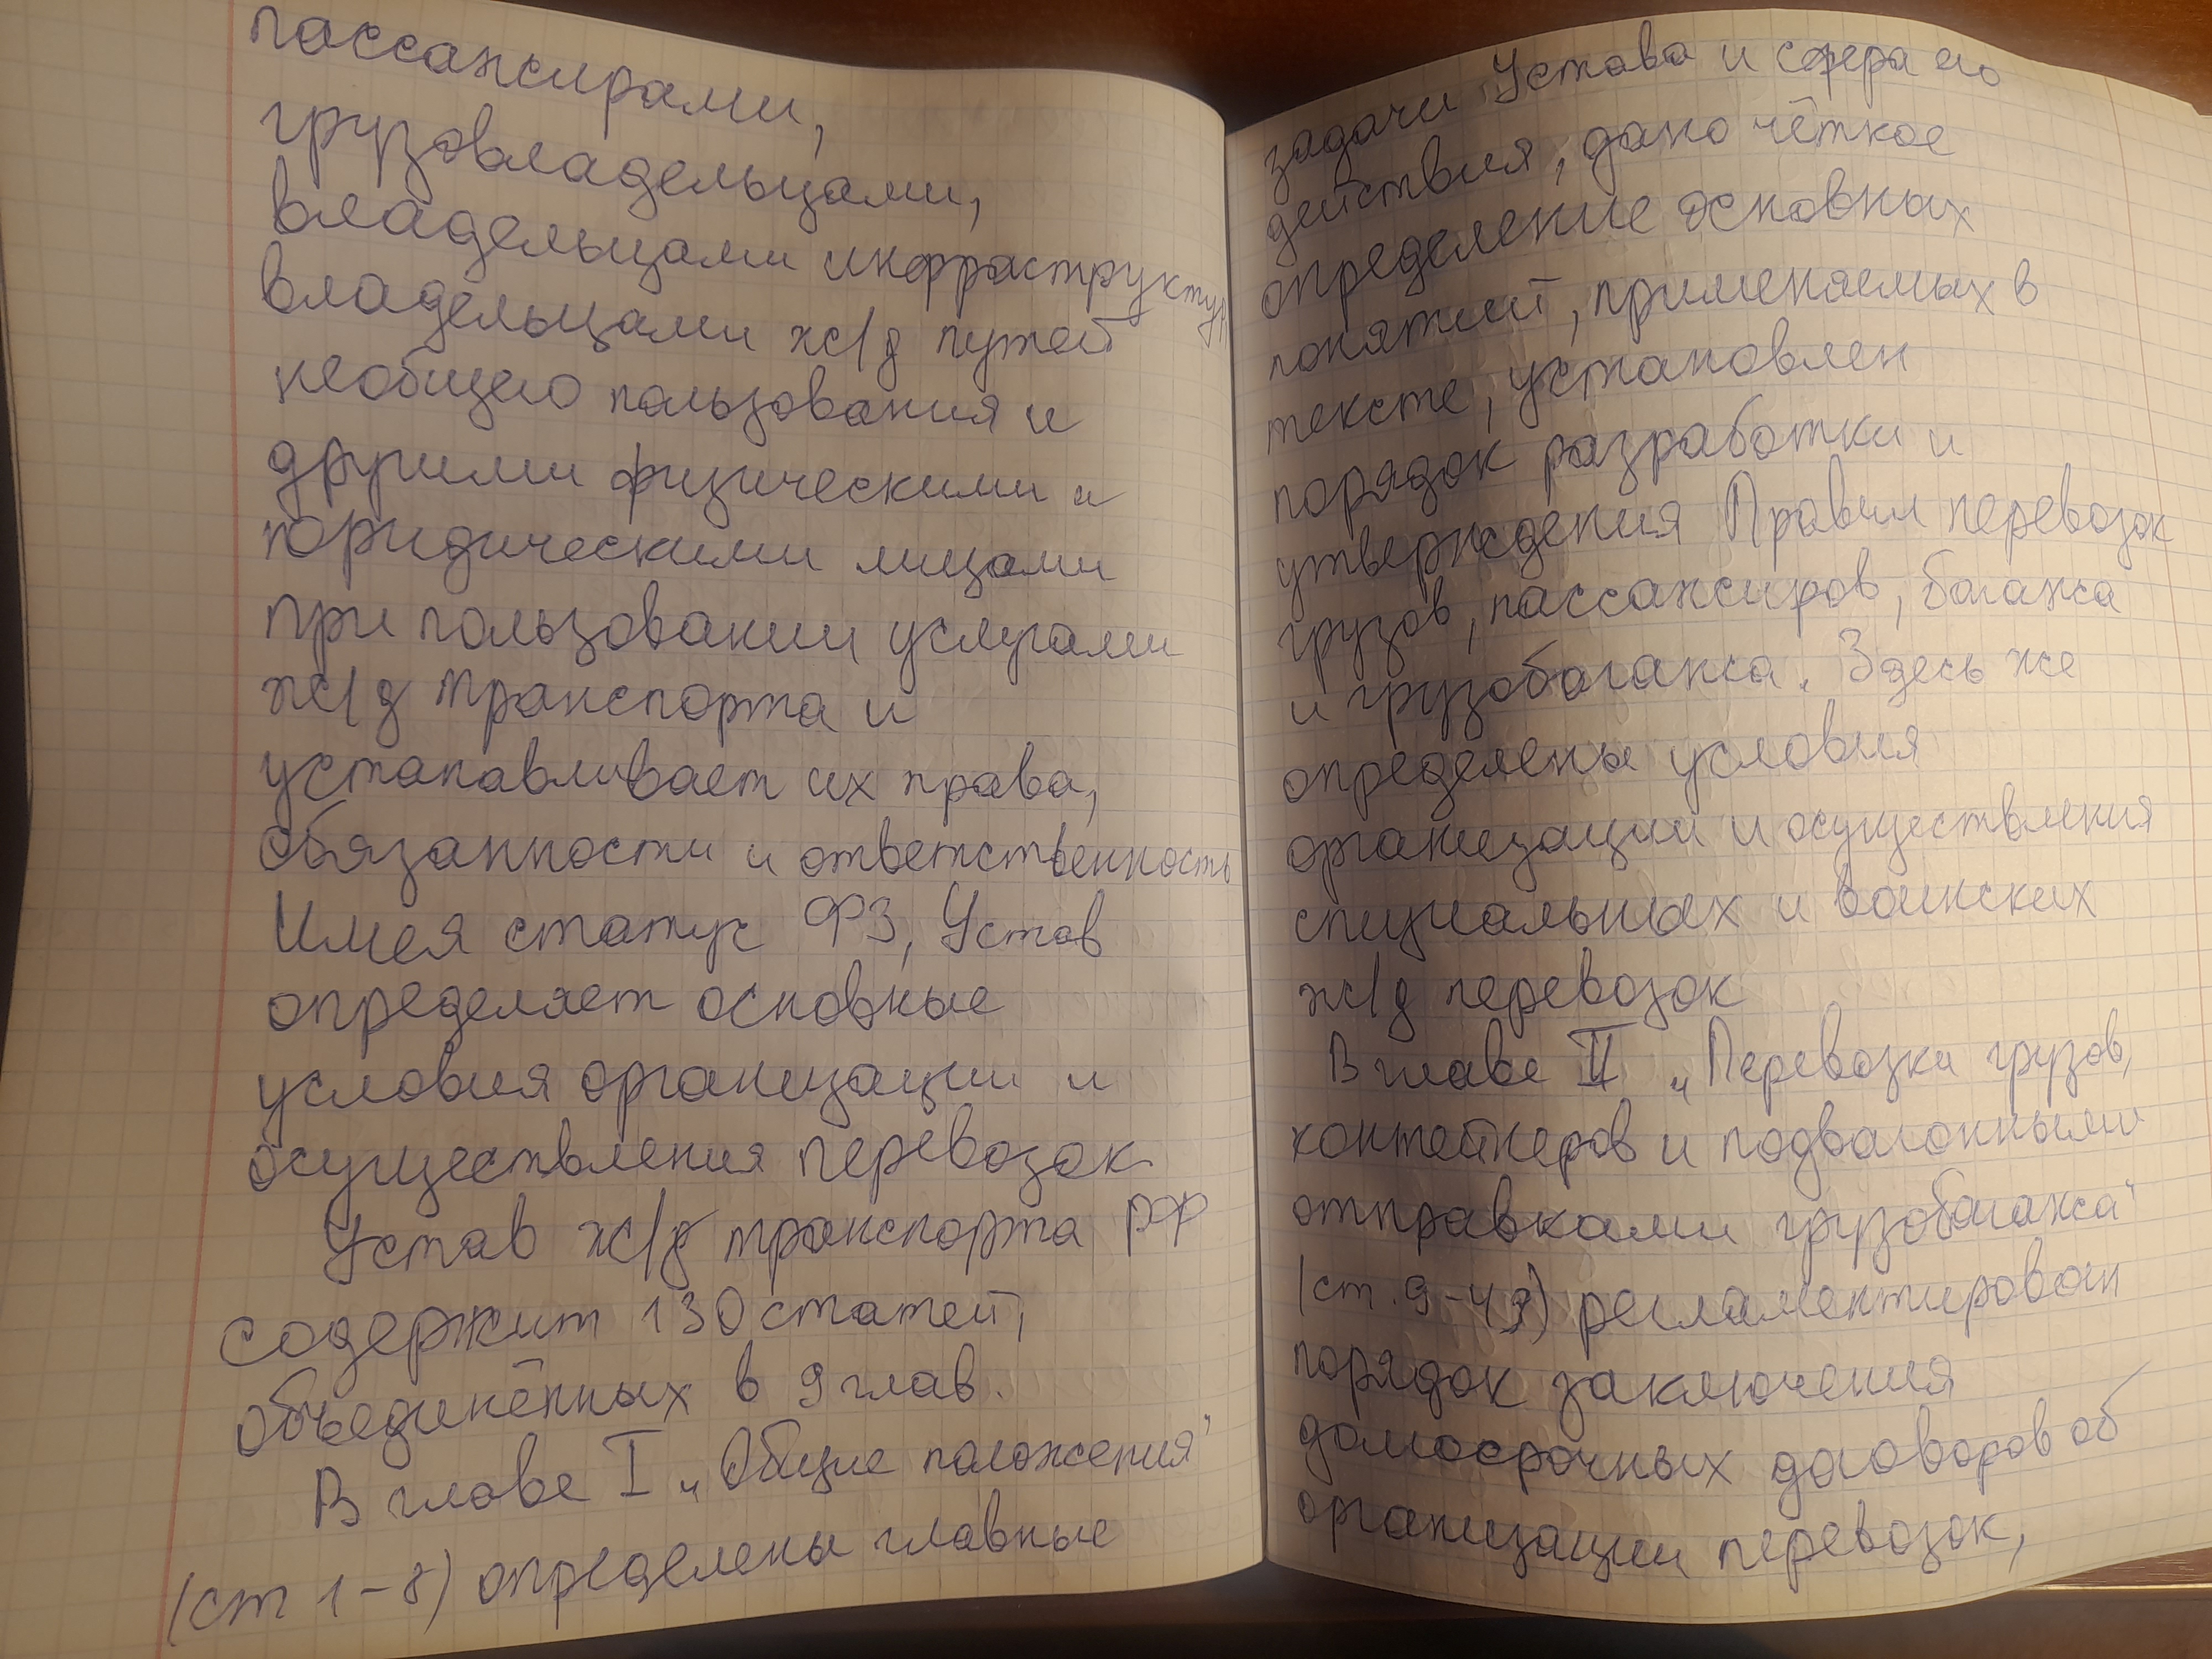 пассажирами,
грузовладельцами,
владельцами инфраструктур
владельцами ж/д путей
необщего пользования и
другими физическими и
юридическими лицами
при пользовании услугами
ж/д транспорта и
устанавливает их права,
обязанности и ответственность
Имея статус ФЗ, Устав
определяет основные
условия организации и
осуществления перевозок
Устав ж/д транспорта РФ
содержит 130 статей,
объединённых в 9 глав.
В главе I „Общие положения"
(ст 1-8) определены главные
задачи Устава и сфера его
действия, дано чёткое
определение основных
понятий, применяемых в
тексте, установлен
порядок разработки и
утверждения Правил перевозок
грузов, пассажиров, багажа
и грузобагажа. Здесь же
определены условия
организации и осуществления
специальных и воинских
ж/д перевозок
В главе II „Перевозки грузов,
контейнеров и подвагонными
отправками грузобагажа"
(ст. 9-49) регламентирован
порядок заключения
домосрочных договоров об
организации перевозок,